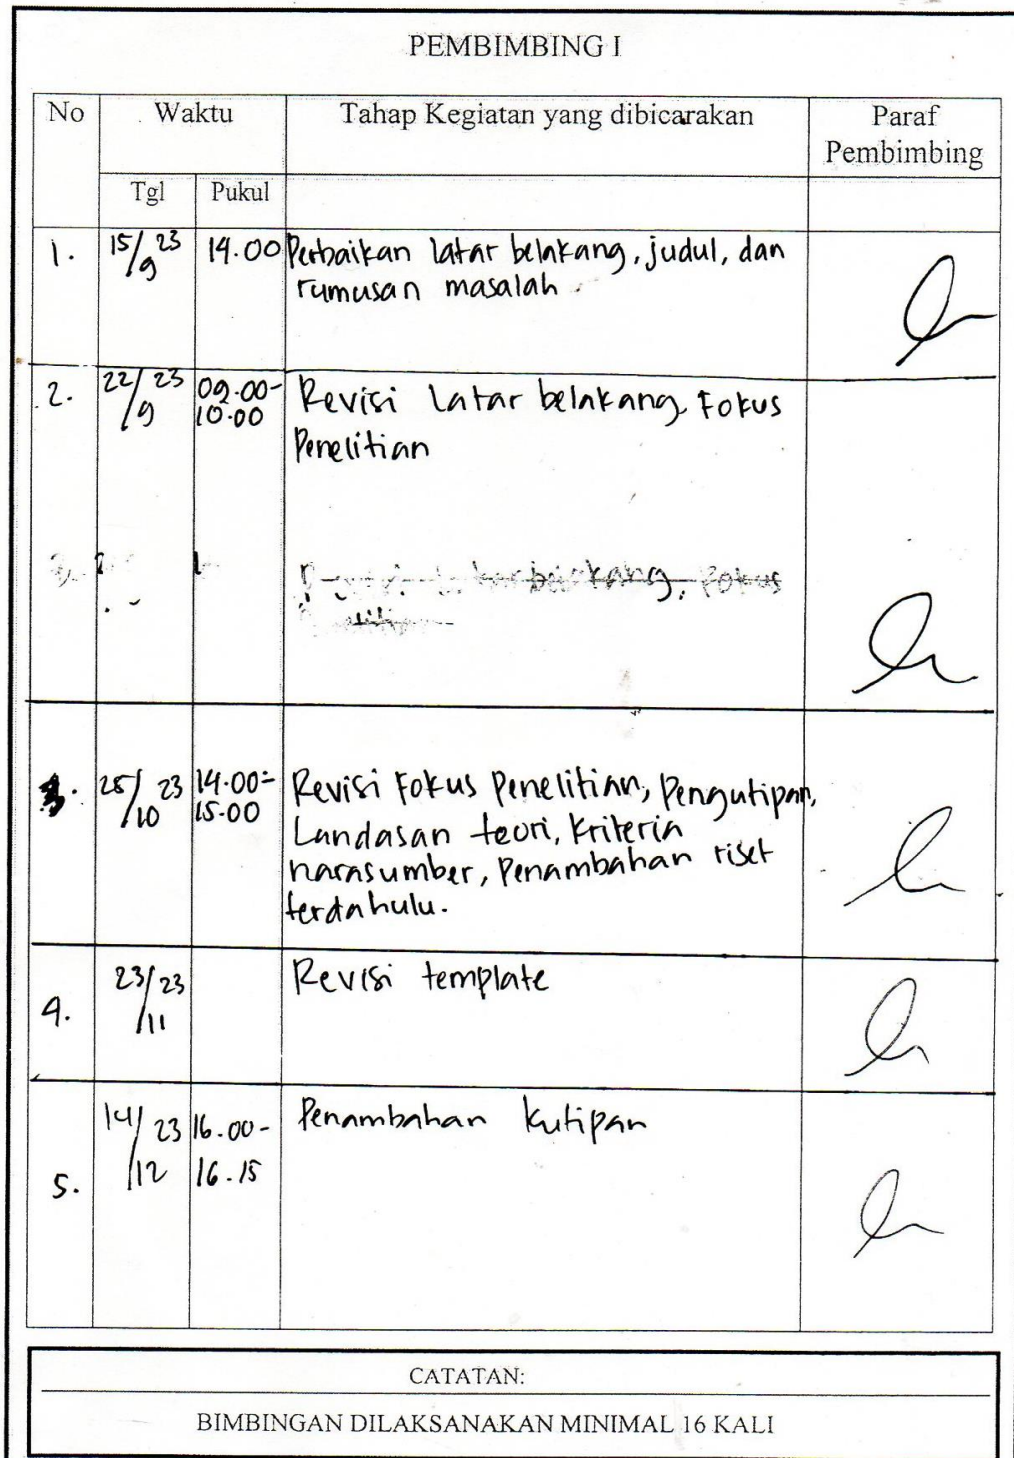 PEMBIMBING I
No Waktu Tahap Kegiatan yang dibicarakan Paraf
Pembimbing
Tgl Pukul
1. 15/9 23 14.00 Perbaikan latar belakang, judul, dan
rumusan masalah
2. 22/9 23 09.00-
10.00 Revisi Latar belakang, Fokus
Penelitian
3. 25/10 23 14.00-
15.00 Revisi Fokus Penelitian, Pengutipan,
Landasan teori, Kriteria
narasumber, Penambahan riset
terdahulu.
4. 23/11 23 Revisi template
5. 14/12 23 16.00-
16.15 Penambahan Kutipan
CATATAN:
BIMBINGAN DILAKSANAKAN MINIMAL 16 KALI